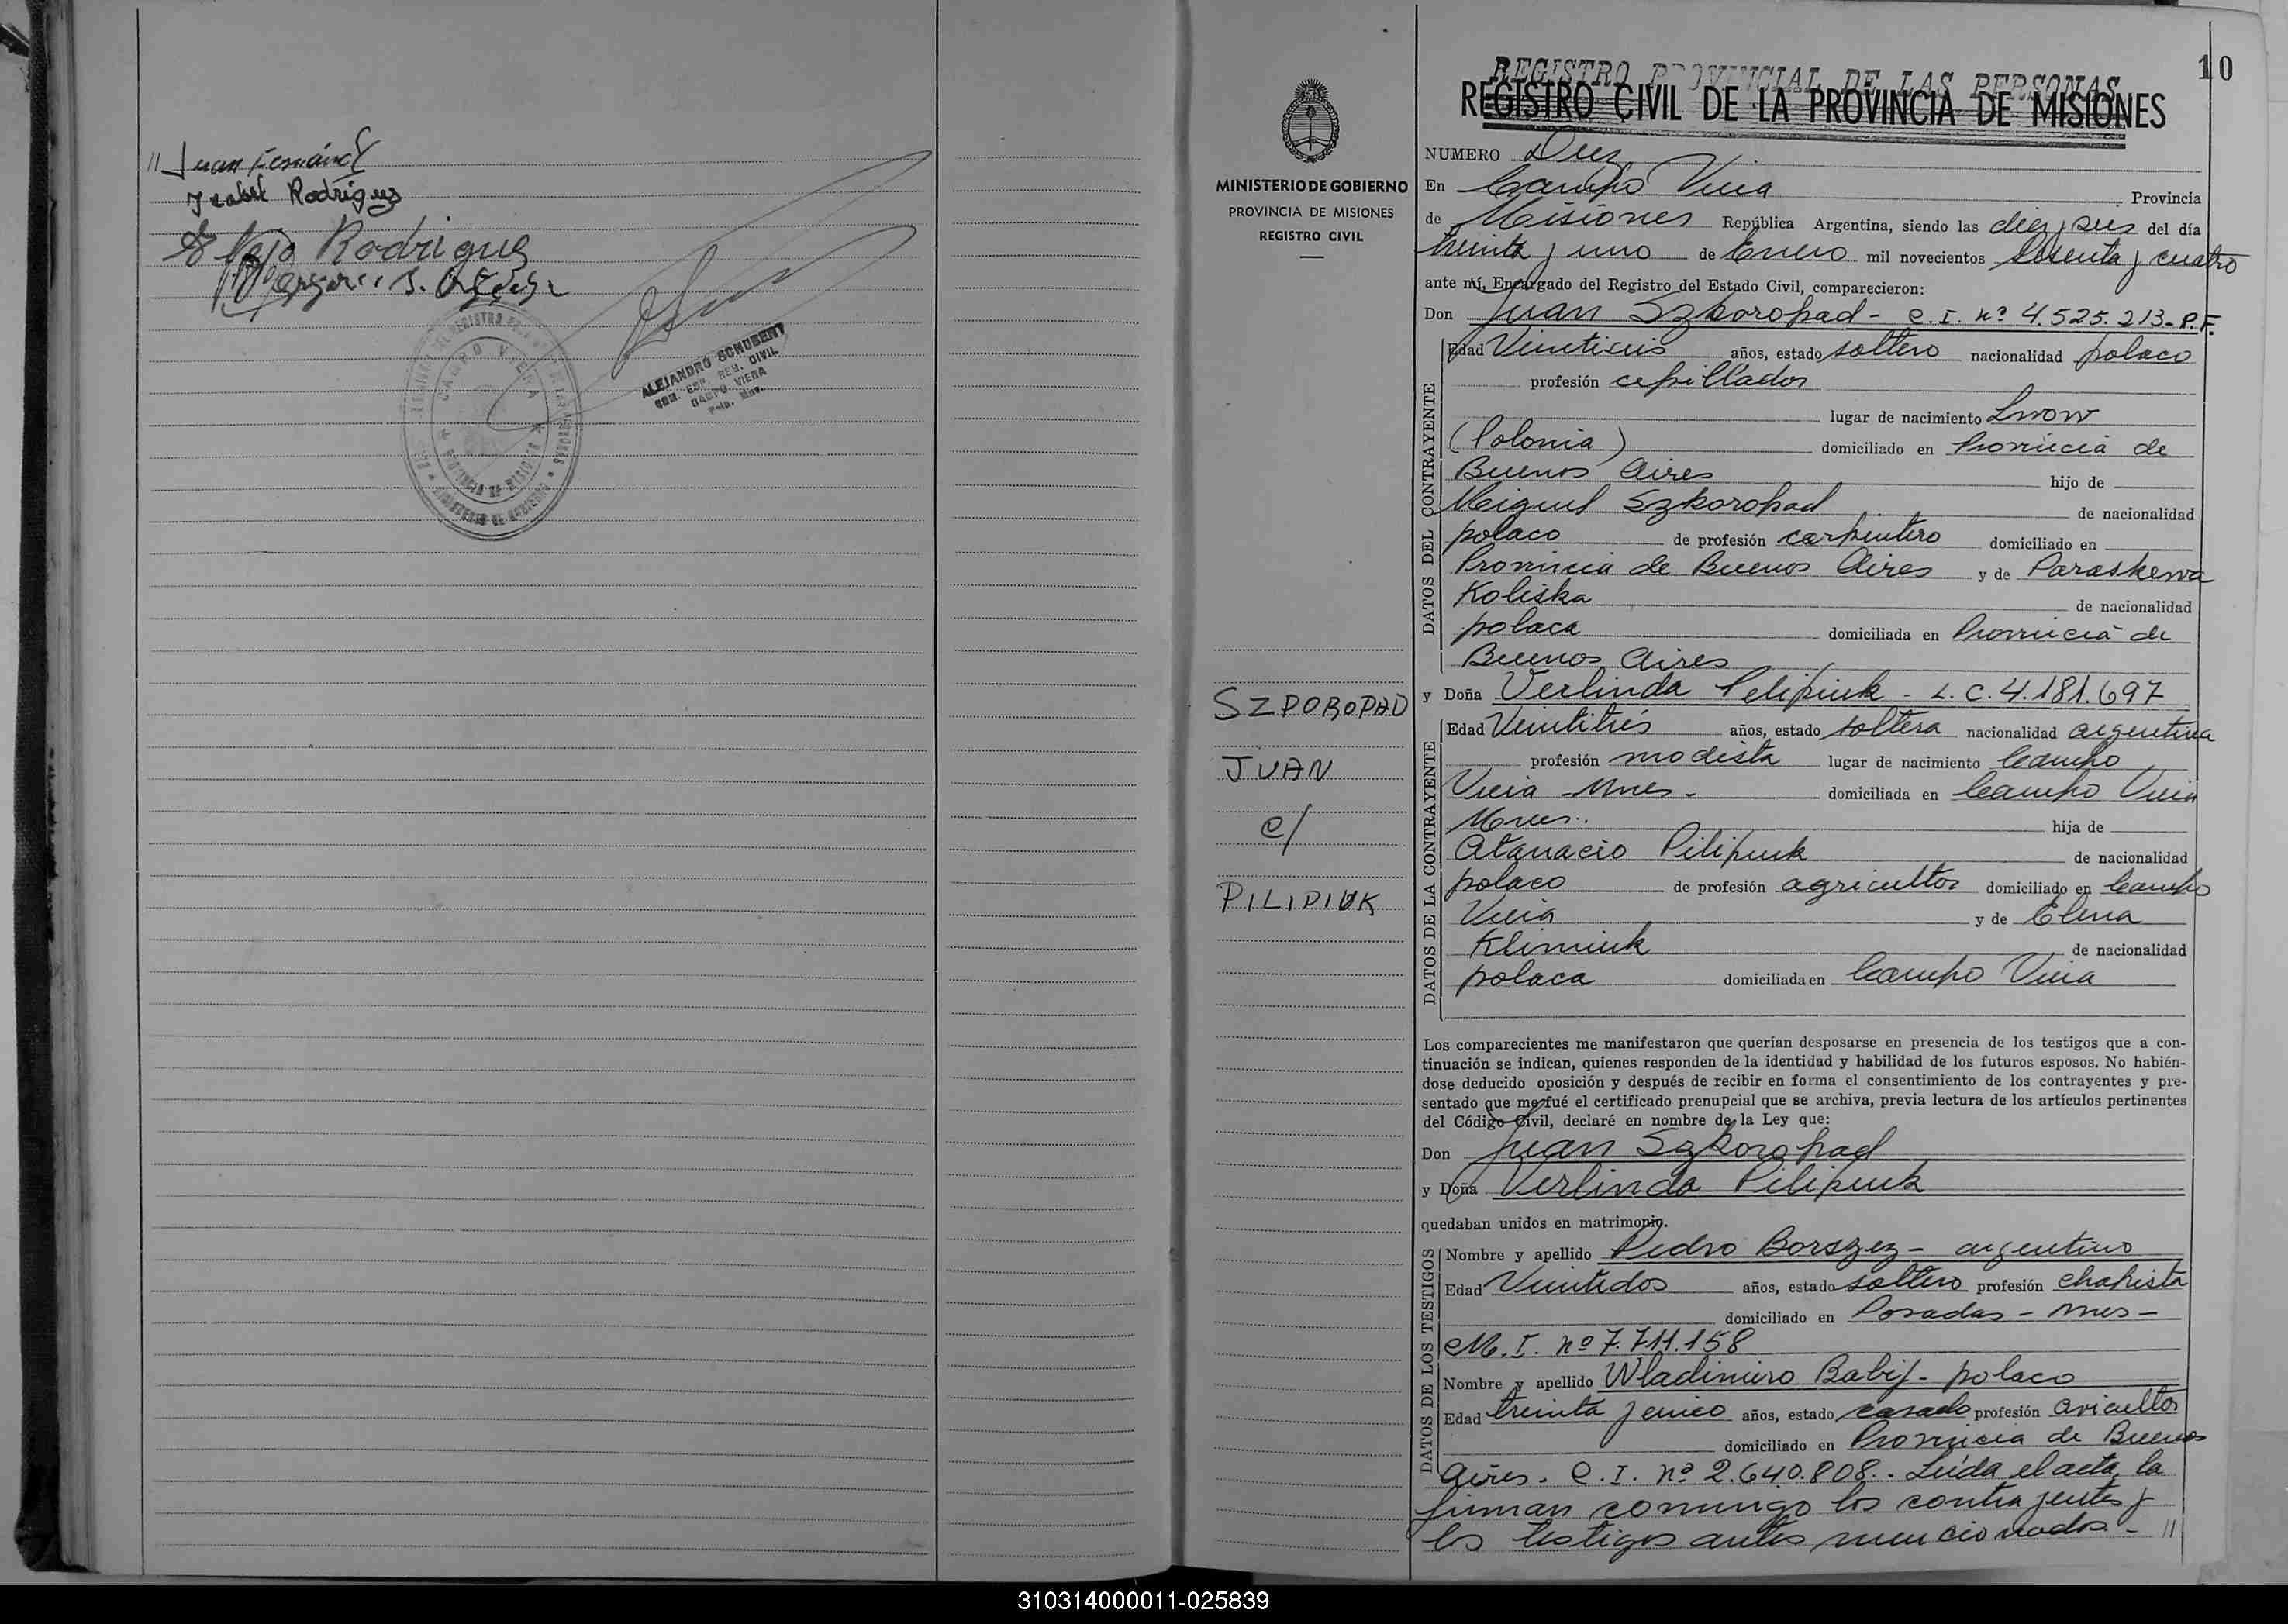 // Juan Fernández
Isabel Rodríguez
Rodriguez
ALEJANDRO SCHUBERT
REG. CIVIL
CAMPO VIERA
Pcia. Mnes.
CAMPO VIERA
PROVINCIA DE MISIONES
MINISTERIO DE GOBIERNO
10
REGISTRO PROVINCIAL DE LAS PERSONAS
REGISTRO CIVIL DE LA PROVINCIA DE MISIONES
MINISTERIO DE GOBIERNO
PROVINCIA DE MISIONES
REGISTRO CIVIL
SZPOROPAD
JUAN
c/
PILIPIUK
NUMERO Diez
En Campo Viera Provincia
de Misiones República Argentina, siendo las diez y seis del día
treinta y uno de Enero mil novecientos sesenta y cuatro
ante mí, Encargado del Registro del Estado Civil, comparecieron:
Don Juan Szkoropad - C.I. nº 4.525.213- P.F.
DATOS DEL CONTRAYENTE
Edad Veintiseis años, estado soltero nacionalidad polaco
profesión cepillador
lugar de nacimiento Lwow
(Polonia) domiciliado en Provincia de
Buenos Aires hijo de
Miguel Szkoropad de nacionalidad
polaco de profesión carpintero domiciliado en
Provincia de Buenos Aires y de Paraskewa
Koliska de nacionalidad
polaca domiciliada en Provincia de
Buenos Aires
y Doña Verlinda Pilipiuk - L.C. 4.181.697
DATOS DE LA CONTRAYENTE
Edad Veintitrés años, estado soltera nacionalidad argentina
profesión modista lugar de nacimiento Campo
Viera - Mnes - domiciliada en Campo Viera
Mnes. hija de
Atanacio Pilipiuk de nacionalidad
polaco de profesión agricultor domiciliado en Campo
Viera y de Elena
Klimiuk de nacionalidad
polaca domiciliada en Campo Viera
Los comparecientes me manifestaron que querían desposarse en presencia de los testigos que a con-
tinuación se indican, quienes responden de la identidad y habilidad de los futuros esposos. No habién-
dose deducido oposición y después de recibir en forma el consentimiento de los contrayentes y pre-
sentado que me fué el certificado prenupcial que se archiva, previa lectura de los artículos pertinentes
del Código Civil, declaré en nombre de la Ley que:
Don Juan Szkoropad
y Doña Verlinda Pilipiuk
quedaban unidos en matrimonio.
DATOS DE LOS TESTIGOS
Nombre y apellido Pedro Borszez - argentino
Edad Veintidos años, estado soltero profesión chapista
domiciliado en Posadas - Mnes -
M.I. nº 7.711.158
Nombre y apellido Wladimiro Babij - polaco
Edad treinta y cinco años, estado casado profesión avicultor
domiciliado en Provincia de Buenos
Aires. C.I. nº 2.640.808.- Leída el acta, la
firman conmigo los contrayentes y
los testigos antes mencionados.- //
310314000011-025839